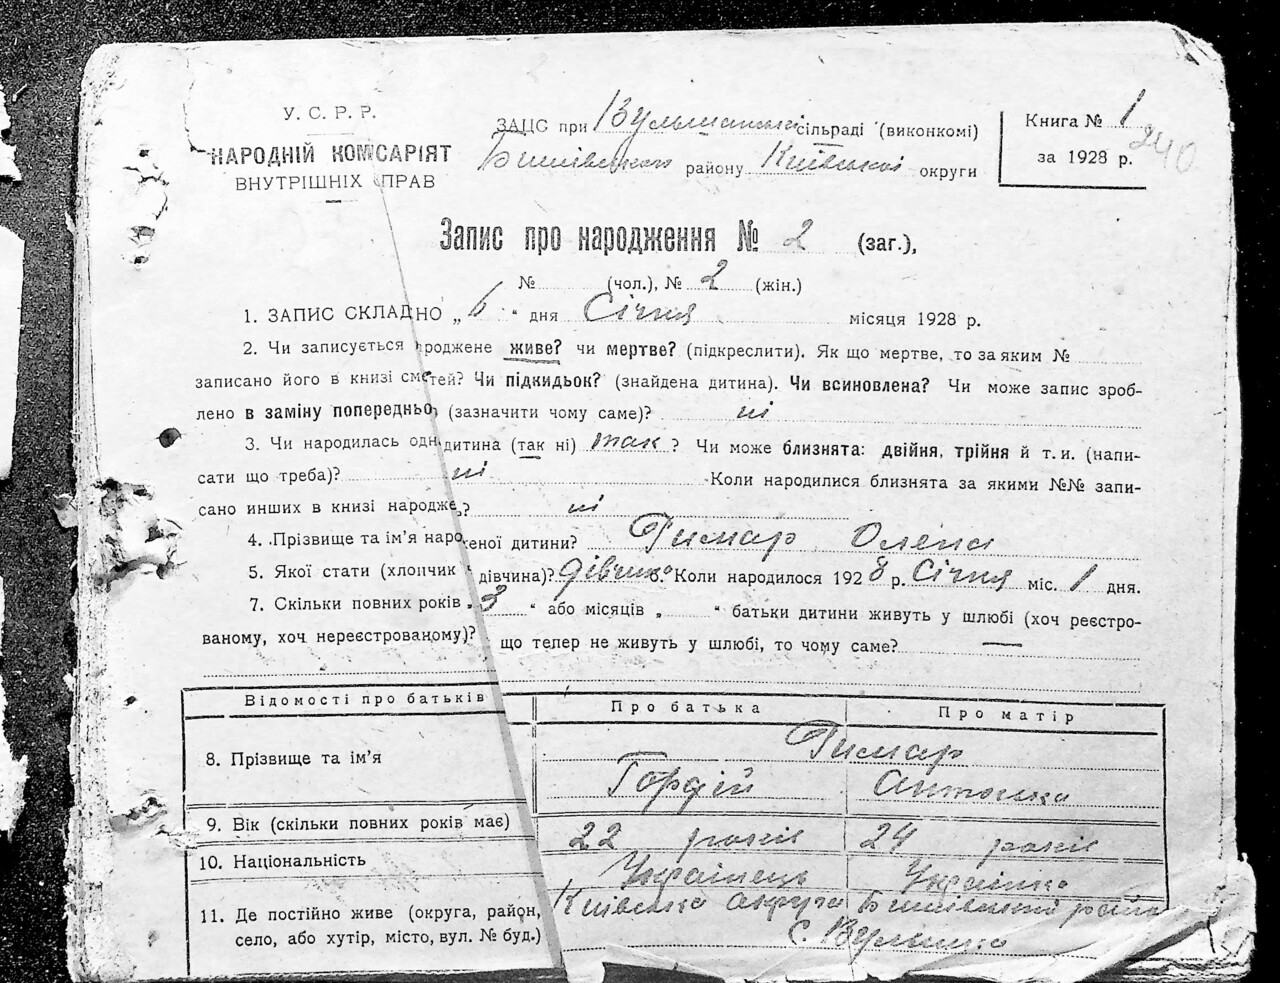 У. С. Р. Р.
НАРОДНІЙ КОМІСАРІЯТ
ВНУТРІШНІХ СПРАВ
ЗАЦС при Вульшанській сільраді (виконкомі)
Бишівського району Київської округи
Книга № 1
за 1928 р.
240
Запис про народження № 2 (заг.),
№ (чол.), № 2 (жін.)
1. ЗАПИС СКЛАДНО „ 6 “ дня Січня місяця 1928 р.
2. Чи записується роджене живе? чи мертве? (підкреслити). Як що мертве, то за яким №
записано його в книзі смертей? Чи підкидьок? (знайдена дитина). Чи всиновлена? Чи може запис зроб-
лено в заміну попередньо (зазначити чому саме)? ні
3. Чи народилась одна дитина (так ні) так ? Чи може близнята: двійня, трійня й т. и. (напи-
сати що треба)? ні Коли народилися близнята за якими №№ запи-
сано инших в книзі народже ? ні
4. Прізвище та ім’я народженої дитини? Гимар Олена
5. Якої стати (хлопчик дівчина)? дівчина 6. Коли народилося 1928 р. Січня міс. 1 дня.
7. Скільки повних років „ 3 “ або місяців „ “ батьки дитини живуть у шлюбі (хоч реєстро-
ваному, хоч нереєстрованому)? що тепер не живуть у шлюбі, то чому саме? —
Відомості про батьків Про батька Про матір
8. Прізвище та ім’я Гимар
Гордій Антонка
9. Вік (скільки повних років має) 22 роки 24 роки
10. Національність Українець Українка
11. Де постійно живе (округа, район, Київська округа Бишівський район
село, або хутір, місто, вул. № буд.) с. Вульшка